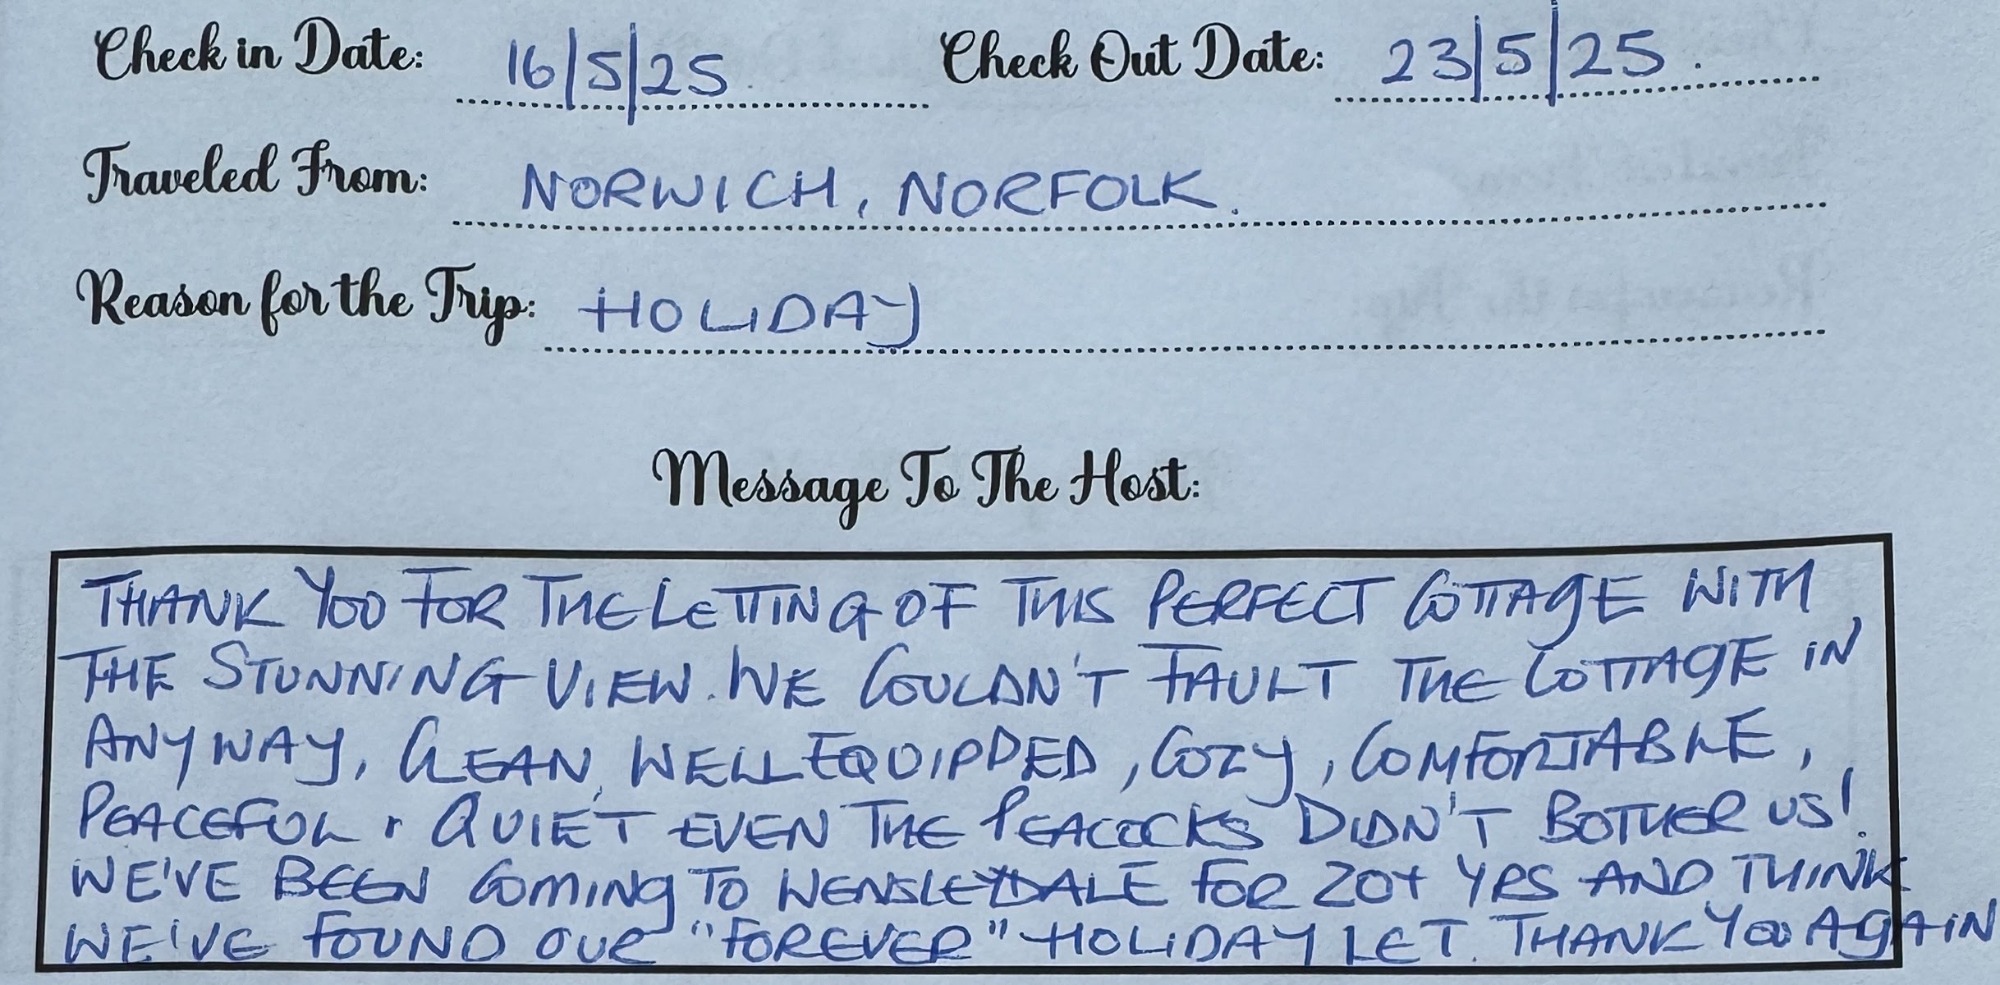 Check in Date: 16/5/25 Check Out Date: 23/5/25.
Traveled From: NORWICH, NORFOLK.
Reason for the Trip: HOLIDAY
Message To The Host:
THANK YOU FOR THE LETTING OF THIS PERFECT COTTAGE WITH
THE STUNNING VIEW. WE COULDN'T FAULT THE COTTAGE IN
ANYWAY, CLEAN, WELL EQUIPPED, COZY, COMFORTABLE,
PEACEFUL + QUIET EVEN THE PEACOCKS DIDN'T BOTHER US!
WE'VE BEEN COMING TO WENSLEYDALE FOR 20+ YRS AND THINK
WE'VE FOUND OUR "FOREVER" HOLIDAY LET. THANK YOU AGAIN